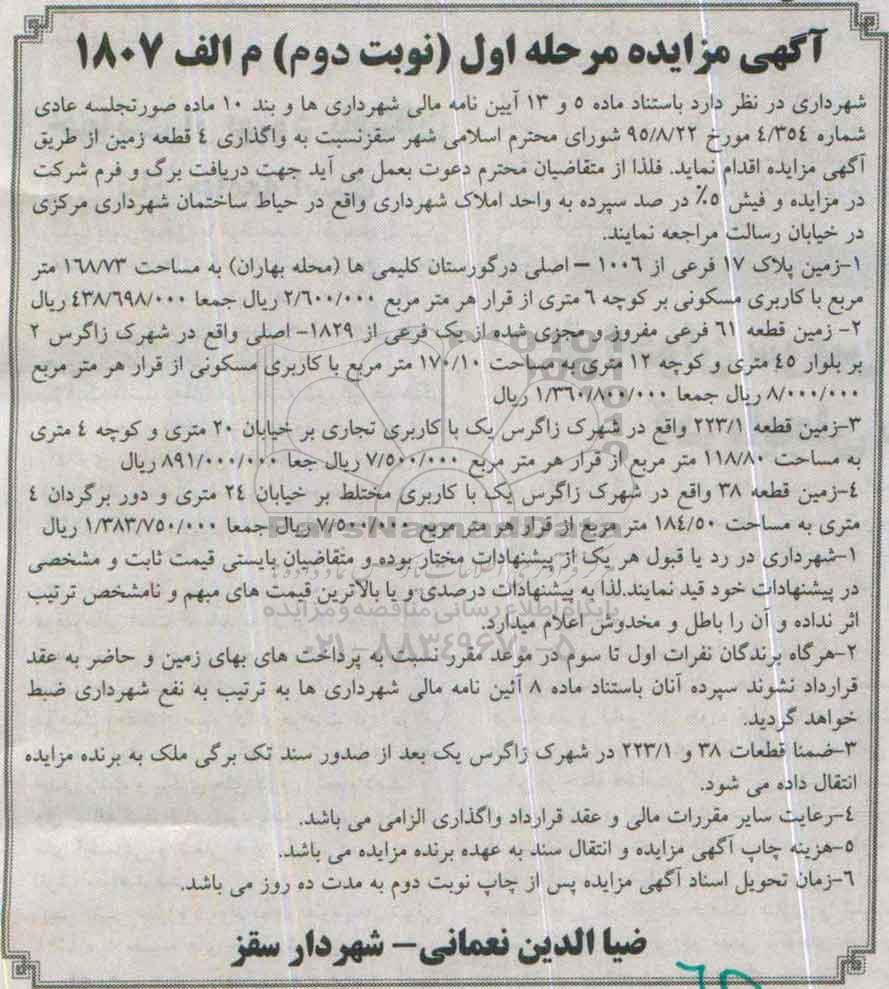 آگهی مزایده مرحله اول (نوبت دوم) م الف ۱۸۰۷
شهرداری در نظر دارد باستناد ماده ۵ و ۱۳ آیین نامه مالی شهرداری ها و بند ۱۰ ماده صورتجلسه عادی
شماره ٤/٣٥٤ مورخ ۹۵/۸/۲۲ شورای محترم اسلامی شهر سقزنسبت به واگذاری ٤ قطعه زمین از طریق
آگهی مزایده اقدام نماید. فلذا از متقاضیان محترم دعوت بعمل می آید جهت دریافت برگ و فرم شرکت
در مزایده و فیش ۵٪ در صد سپرده به واحد املاک شهرداری واقع در حیاط ساختمان شهرداری مرکزی
در خیابان رسالت مراجعه نمایند.
۱-زمین پلاک ۱۷ فرعی از ۱۰۰۶ – اصلی درگورستان کلیمی ها (محله بهاران) به مساحت ۱۶۸/۷۳ متر
مربع با کاربری مسکونی بر کوچه ٦ متری از قرار هر متر مربع ۲/۶۰۰/۰۰۰ ریال جمعا ٤۳۸/۶۹۸/۰۰۰ ریال
۲- زمین قطعه ٦١ فرعی مفروز و مجزی شده از یک فرعی از ۱۸۲۹- اصلی واقع در شهرک زاگرس ۲
بر بلوار ٤٥ متری و کوچه ۱۲ متری به مساحت ۱۷۰/۱۰ متر مربع با کاربری مسکونی از قرار هر متر مربع
۸/۰۰۰/۰۰۰ ریال جمعا ۱/۳۶۰/۸۰۰/۰۰۰ ریال
۳-زمین قطعه ۲۲۳/۱ واقع در شهرک زاگرس یک با کاربری تجاری بر خیابان ۲۰ متری و کوچه ٤ متری
به مساحت ۱۱۸/۸۰ متر مربع از قرار هر متر مربع ۷/۵۰۰/۰۰۰ ریال جعا ۸۹۱/۰۰۰/۰۰۰ ریال
٤-زمین قطعه ۳۸ واقع در شهرک زاگرس یک با کاربری مختلط بر خیابان ۲٤ متری و دور برگردان ٤
متری به مساحت ۱۸٤/۵۰ متر مربع از قرار هر متر مربع ۷/۵۰۰/۰۰۰ ریال جمعا ۱/۳۸۳/۷۵۰/۰۰۰ ریال
۱-شهرداری در رد یا قبول هر یک از پیشنهادات مختار بوده و متقاضیان بایستی قیمت ثابت و مشخصی
در پیشنهادات خود قید نمایند.لذا به پیشنهادات درصدی و یا بالاترین قیمت های مبهم و نامشخص ترتیب
پایگاه اطلاع رسانی مناقصه و مزایده
اثر نداده و آن را باطل و مخدوش اعلام میدارد.
۰۲۱-۸۸۳۴۹۶۷۰-۵
۲-هرگاه برندگان نفرات اول تا سوم در موعد مقرر نسبت به پرداخت های بهای زمین و حاضر به عقد
قرارداد نشوند سپرده آنان باستناد ماده ۸ آئین نامه مالی شهرداری ها به ترتیب به نفع شهرداری ضبط
خواهد گردید.
۳-ضمنا قطعات ۳۸ و ۲۲۳/۱ در شهرک زاگرس یک بعد از صدور سند تک برگی ملک به برنده مزایده
انتقال داده می شود.
٤-رعایت سایر مقررات مالی و عقد قرارداد واگذاری الزامی می باشد.
۵-هزینه چاپ آگهی مزایده و انتقال سند به عهده برنده مزایده می باشد.
٦-زمان تحویل اسناد آگهی مزایده پس از چاپ نوبت دوم به مدت ده روز می باشد.
ضیا الدین نعمانی- شهردار سقز